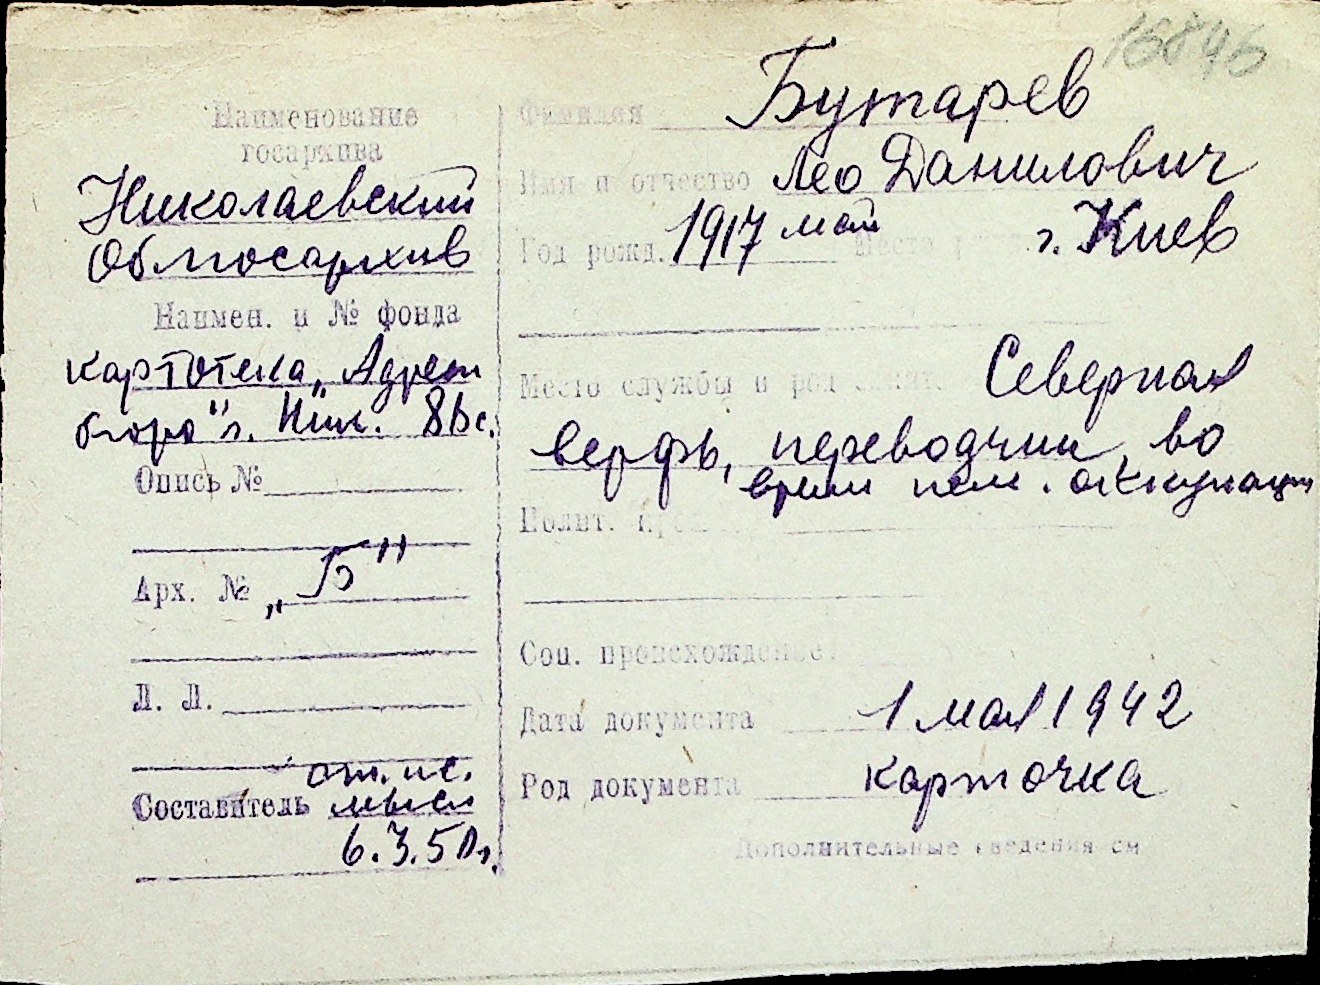 16846
Наименование
госархива
Николаевский
Облгосархив
Наимен. и № фонда
картотека „Адресн
бюро" г. Ник.
Опись №
Арх. № „Б"
Л. Л.
Составитель
6.3.50 г.
Фамилия Бутарев
Имя и отчество Лео Данилович
Год рожд. 1917 май Место г. Киев
Место службы и род занят. Северная
верфь, переводчик, во
время нем. оккупации
Полит.
Соц. происхождение
Дата документа 1 мая 1942
Род документа карточка
Дополнительные сведения см